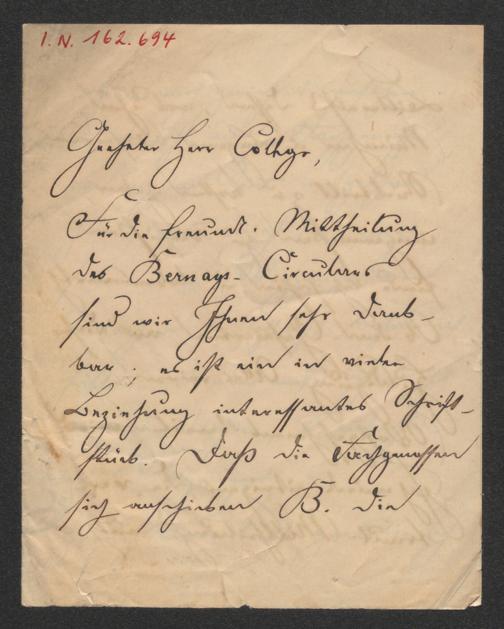 I.N. 162.694
Geehrter Herr College,
Für die freundl. Mittheilung
des Bernays-Circulars
sind wir Ihnen sehr dank-
bar; es ist ein in vieler
Beziehung interessantes Schrift-
stück. Daß die Fachgenossen
sich anschicken B. die